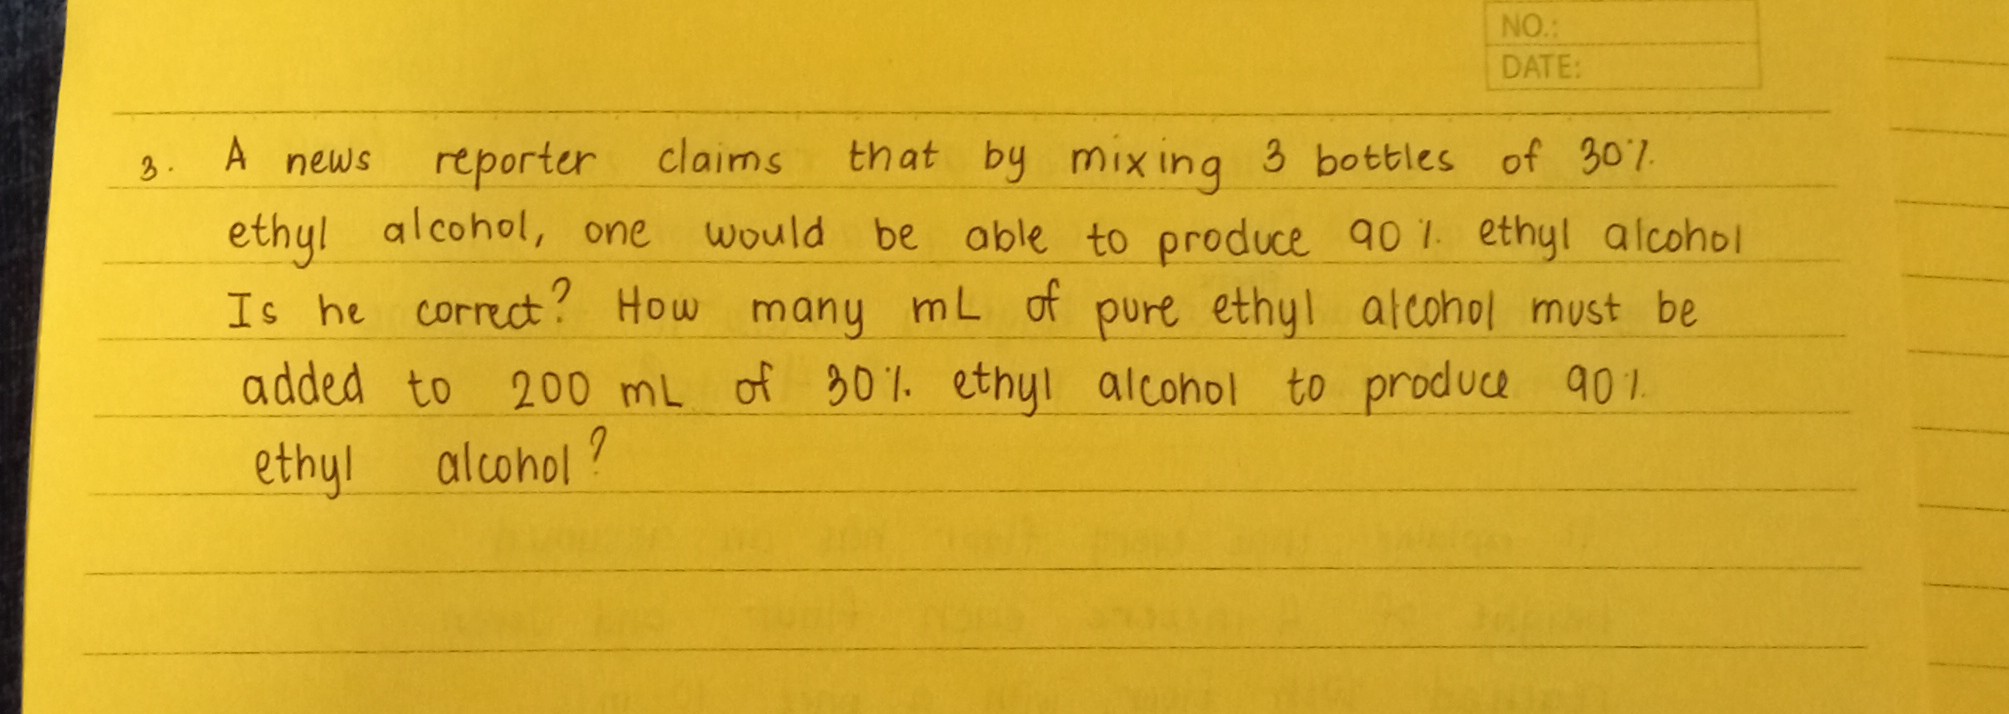 NO.:
DATE:
3. A news reporter claims that by mixing 3 bottles of 30%
ethyl alcohol, one would be able to produce 90% ethyl alcohol
Is he correct? How many mL of pure ethyl alcohol must be
added to 200 mL of 30% ethyl alcohol to produce 90%
ethyl alcohol?